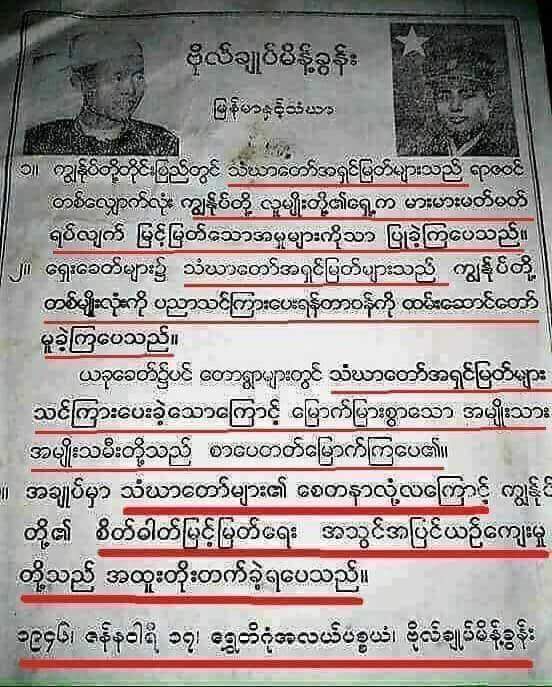 ဗိုလ်ချုပ်မိန့်ခွန်း
မြန်မာနှင့်သံဃာ
၁။ ကျွန်ုပ်တို့တိုင်းပြည်တွင် သံဃာတော်အရှင်မြတ်များသည် ရာဇဝင်
တစ်လျှောက်လုံး ကျွန်ုပ်တို့ လူမျိုးတို့၏ရှေ့က မားမားမတ်မတ်
ရပ်လျက် မြင့်မြတ်သောအမှုများကိုသာ ပြုခဲ့ကြပေသည်။
၂။ ရှေးခေတ်များ၌ သံဃာတော်အရှင်မြတ်များသည် ကျွန်ုပ်တို့
တစ်မျိုးလုံးကို ပညာသင်ကြားပေးရန်တာဝန်ကို ထမ်းဆောင်တော်
မူခဲ့ကြပေသည်။
ယခုခေတ်၌ပင် တောရွာများတွင် သံဃာတော်အရှင်မြတ်များ
သင်ကြားပေးခဲ့သောကြောင့် မြောက်မြားစွာသော အမျိုးသား
အမျိုးသမီးတို့သည် စာပေတတ်မြောက်ကြပေ၏။
။ အချုပ်မှာ သံဃာတော်များ၏ စေတနာလုံ့လကြောင့် ကျွန်ုပ်
တို့၏ စိတ်ဓါတ်မြင့်မြတ်ရေး အသွင်အပြင်ယဉ်ကျေးမှု
တို့သည် အထူးတိုးတက်ခဲ့ရပေသည်။
၁၉၄၆၊ ဇန်နဝါရီ ၁၇၊ ရွှေတိဂုံအလယ်ပစ္စယံ၊ ဗိုလ်ချုပ်မိန့်ခွန်း